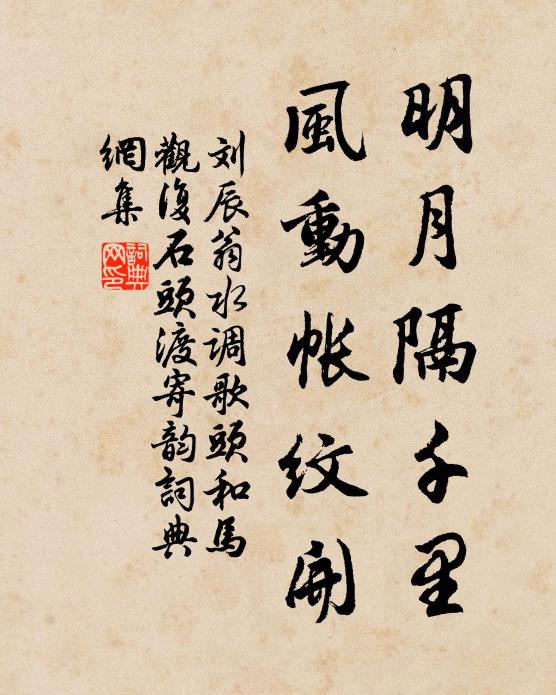 明月隔千里
風動帐紋開
刘辰翁水调歌頭和馬
觀復石頭渡寄韵詞典
網集
詞典
网印